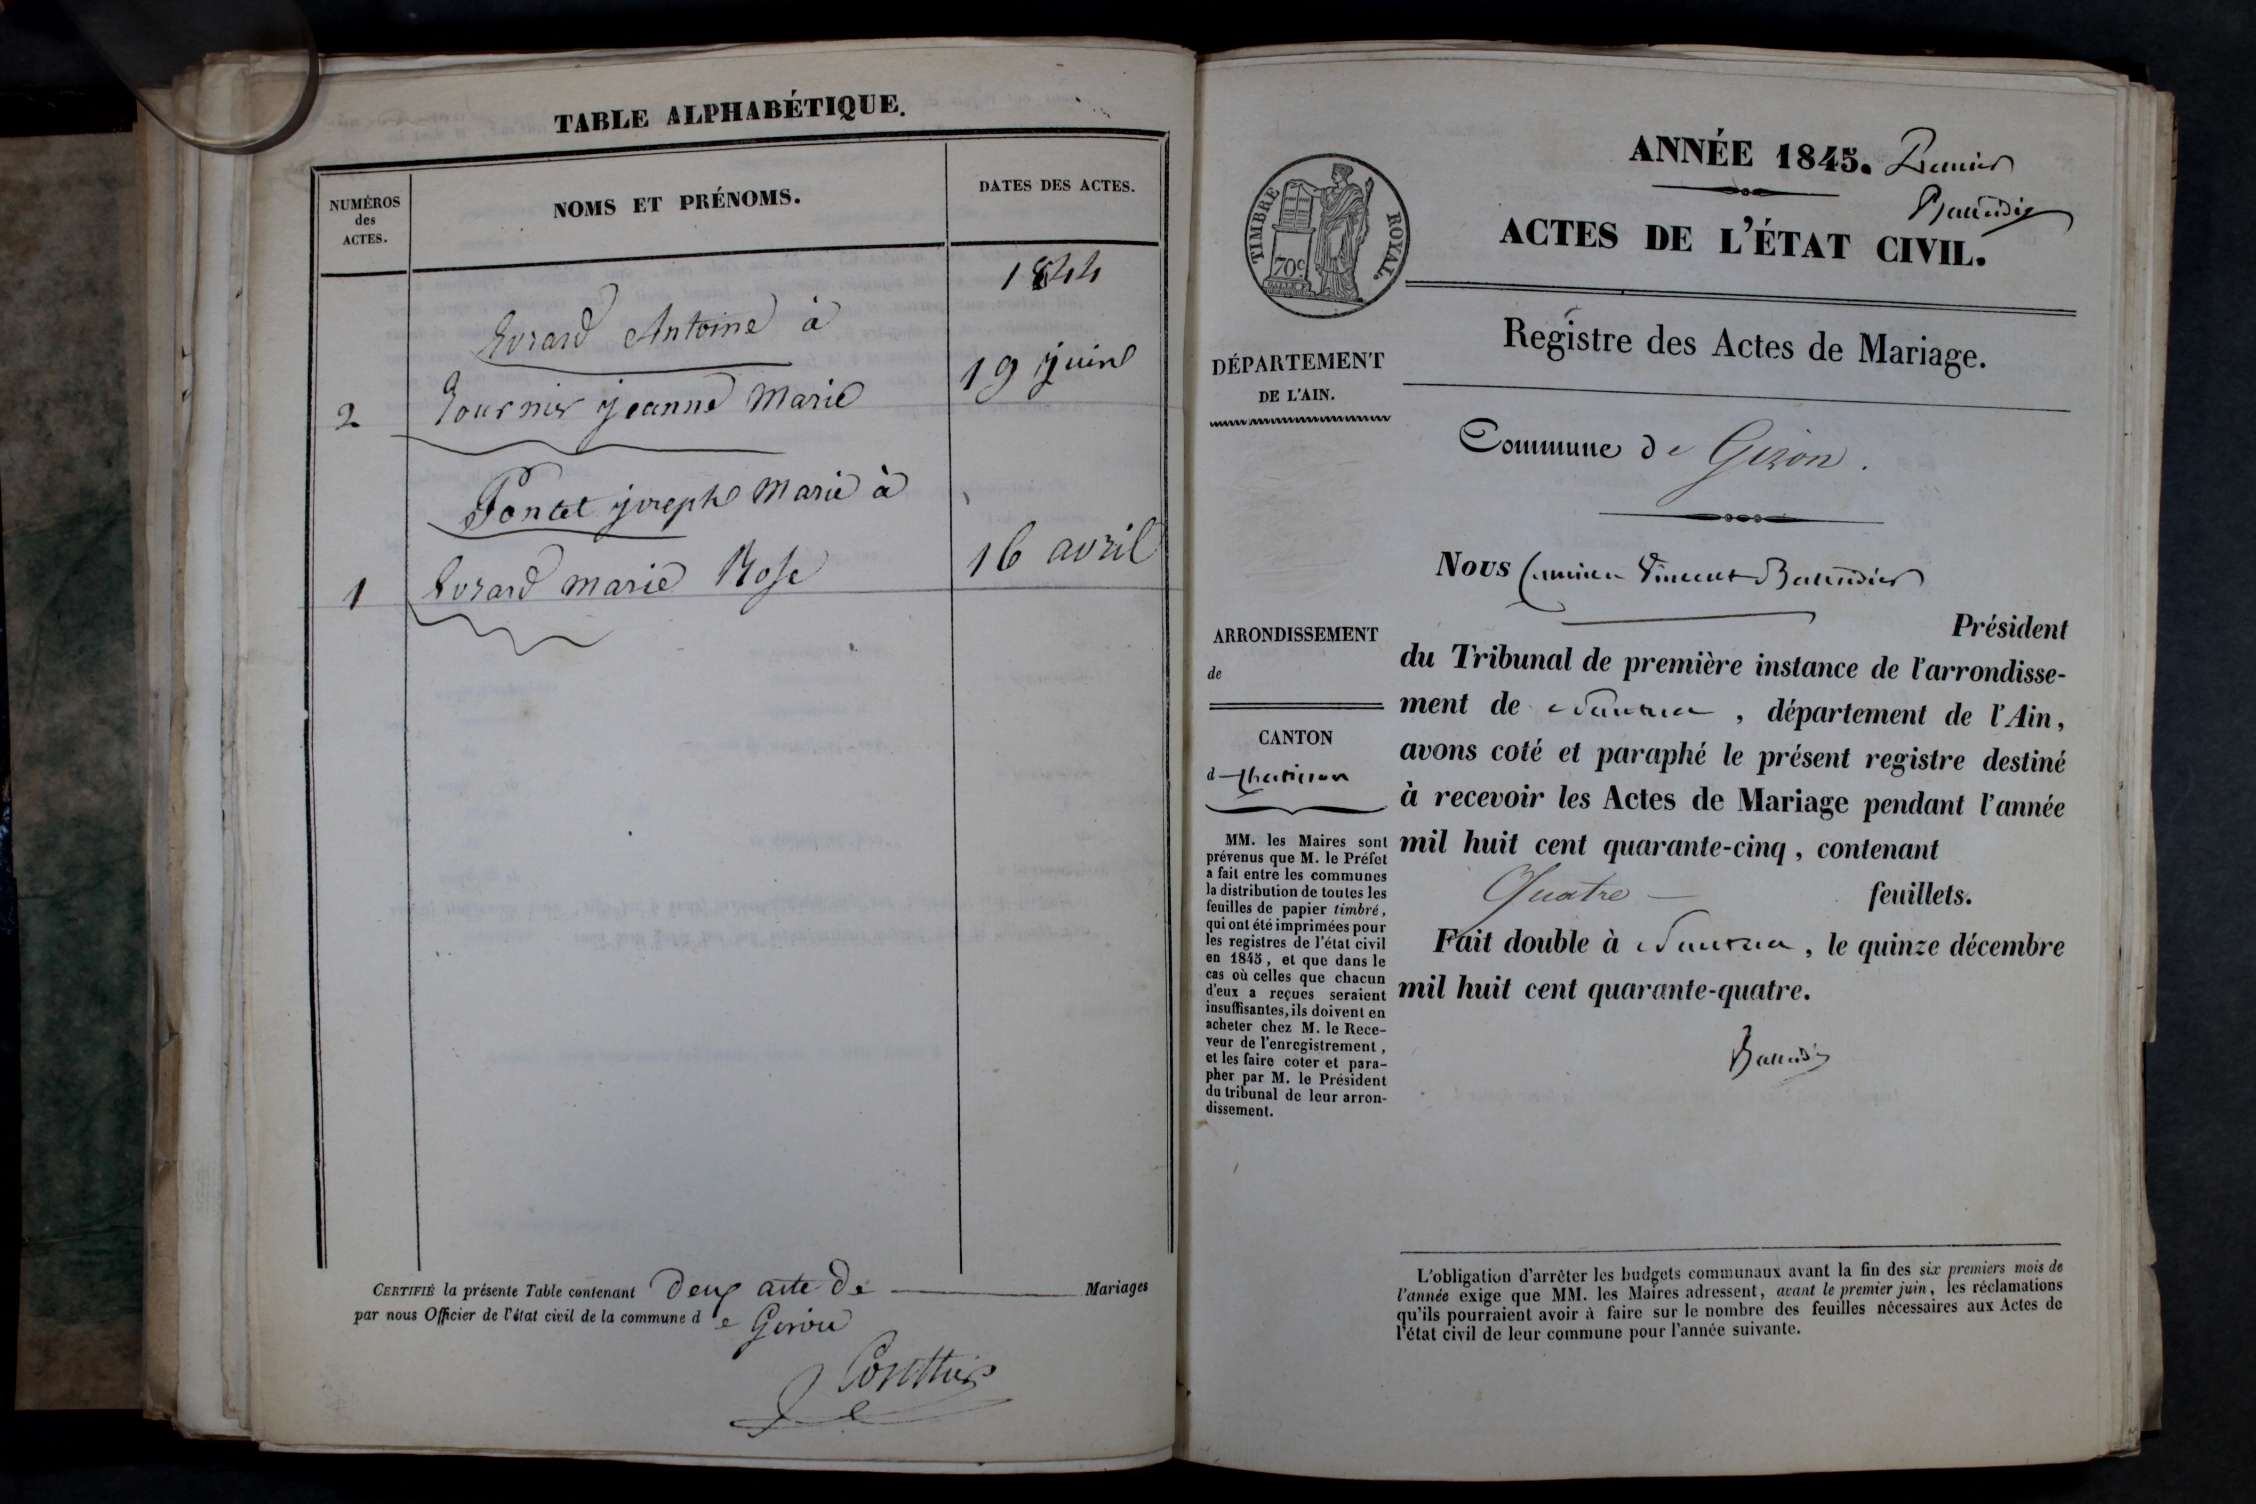 TABLE ALPHABÉTIQUE.
NUMÉROS
des
ACTES.
NOMS ET PRÉNOMS.
DATES DES ACTES.
1844
Evrard Antoine à
2 Tournier jeanne Marie 19 juin
Poncet joseph Marie à
1 Evrard marie Rose 16 avril
CERTIFIÉ la présente Table contenant Deux acte De Mariages
par nous Officier de l'état civil de la commune de Giron
ANNÉE 1845. Premier
Baudier
ACTES DE L'ÉTAT CIVIL.
TIMBRE ROYAL.
70c
Registre des Actes de Mariage.
DÉPARTEMENT
DE L'AIN.
Commune de Giron.
Nous Vincent
Président
du Tribunal de première instance de l'arrondisse-
ment de Nantua, département de l'Ain,
avons coté et paraphé le présent registre destiné
à recevoir les Actes de Mariage pendant l'année
mil huit cent quarante-cinq, contenant
Quatre feuillets.
Fait double à Nantua, le quinze décembre
mil huit cent quarante-quatre.
ARRONDISSEMENT
de
CANTON
d Chatillon
MM. les Maires sont
prévenus que M. le Préfet
a fait entre les communes
la distribution de toutes les
feuilles de papier timbré,
qui ont été imprimées pour
les registres de l'état civil
en 1845, et que dans le
cas où celles que chacun
d'eux a reçues seraient
insuffisantes, ils doivent en
acheter chez M. le Rece-
veur de l'enregistrement,
et les faire coter et para-
pher par M. le Président
du tribunal de leur arron-
dissement.
L'obligation d'arrêter les budgets communaux avant la fin des six premiers mois de
l'année exige que MM. les Maires adressent, avant le premier juin, les réclamations
qu'ils pourraient avoir à faire sur le nombre des feuilles nécessaires aux Actes de
l'état civil de leur commune pour l'année suivante.